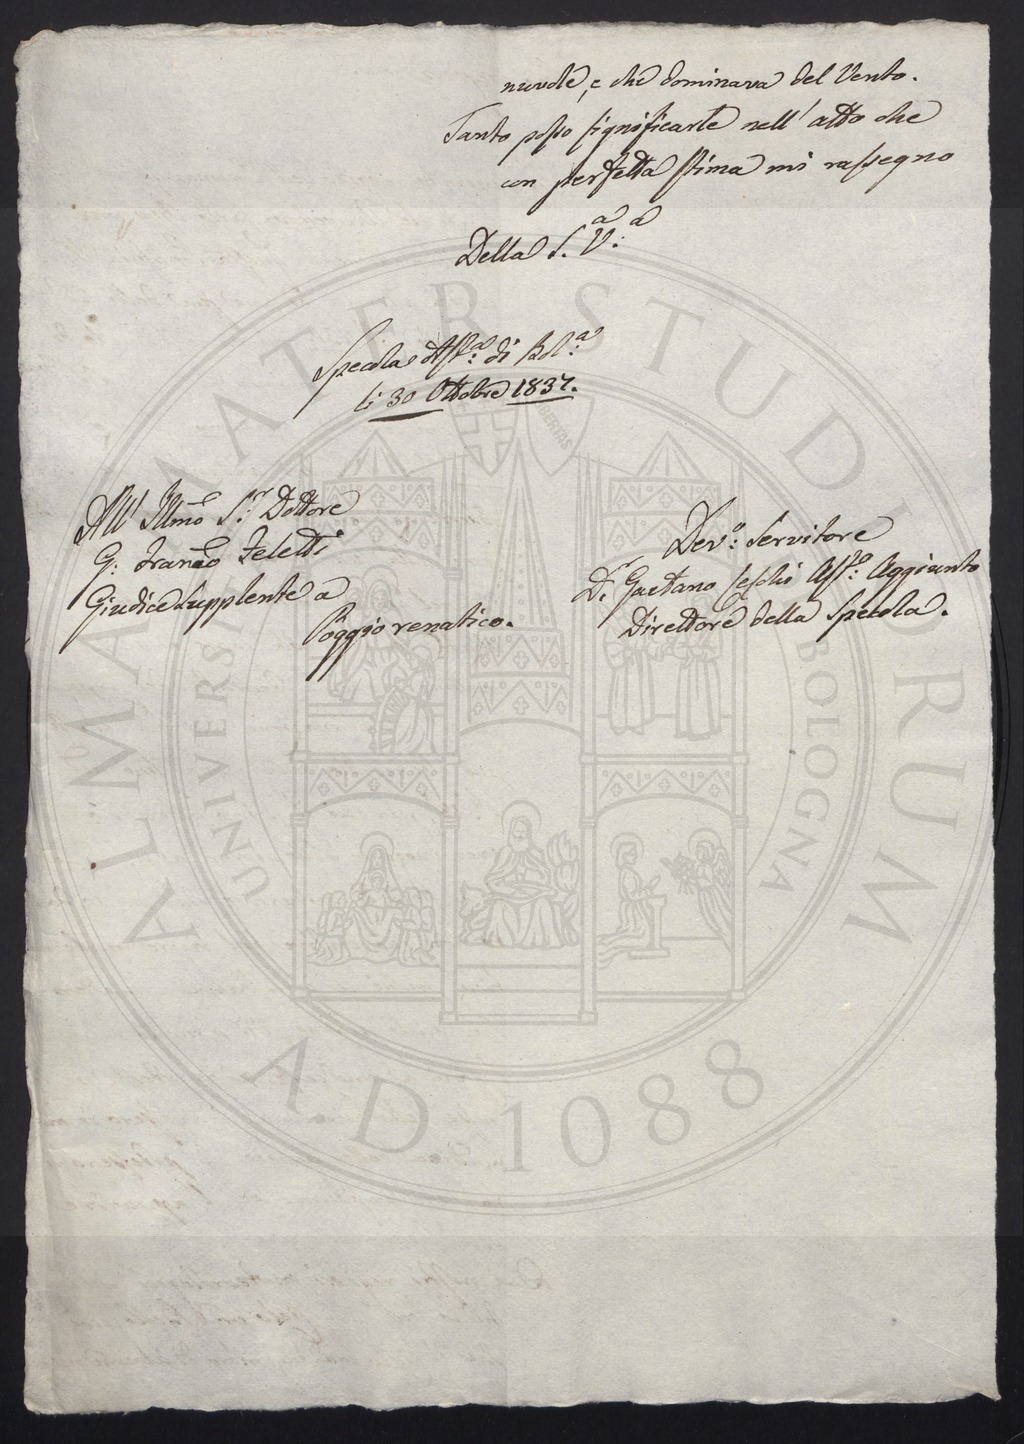 nuvole, e che dominava del Vento.
Tanto posso significarle nell'atto che
con perfetta stima mi rassegno
Della S. V.a
Specola Ast.ca di Bol.a
li 30 Ottobre 1837.
All' Illmo S.r Dottore
G. Franco Zeletti
Giudice Supplente a
Poggio renatico.
Dev.o Servitore
D.r Gaetano Ceschi Ast.o Aggiunto
Direttore della Specola.
ALMA MATER STUDIORUM
UNIVERSITÀ
BOLOGNA
LIBERTAS
A.D. 1088